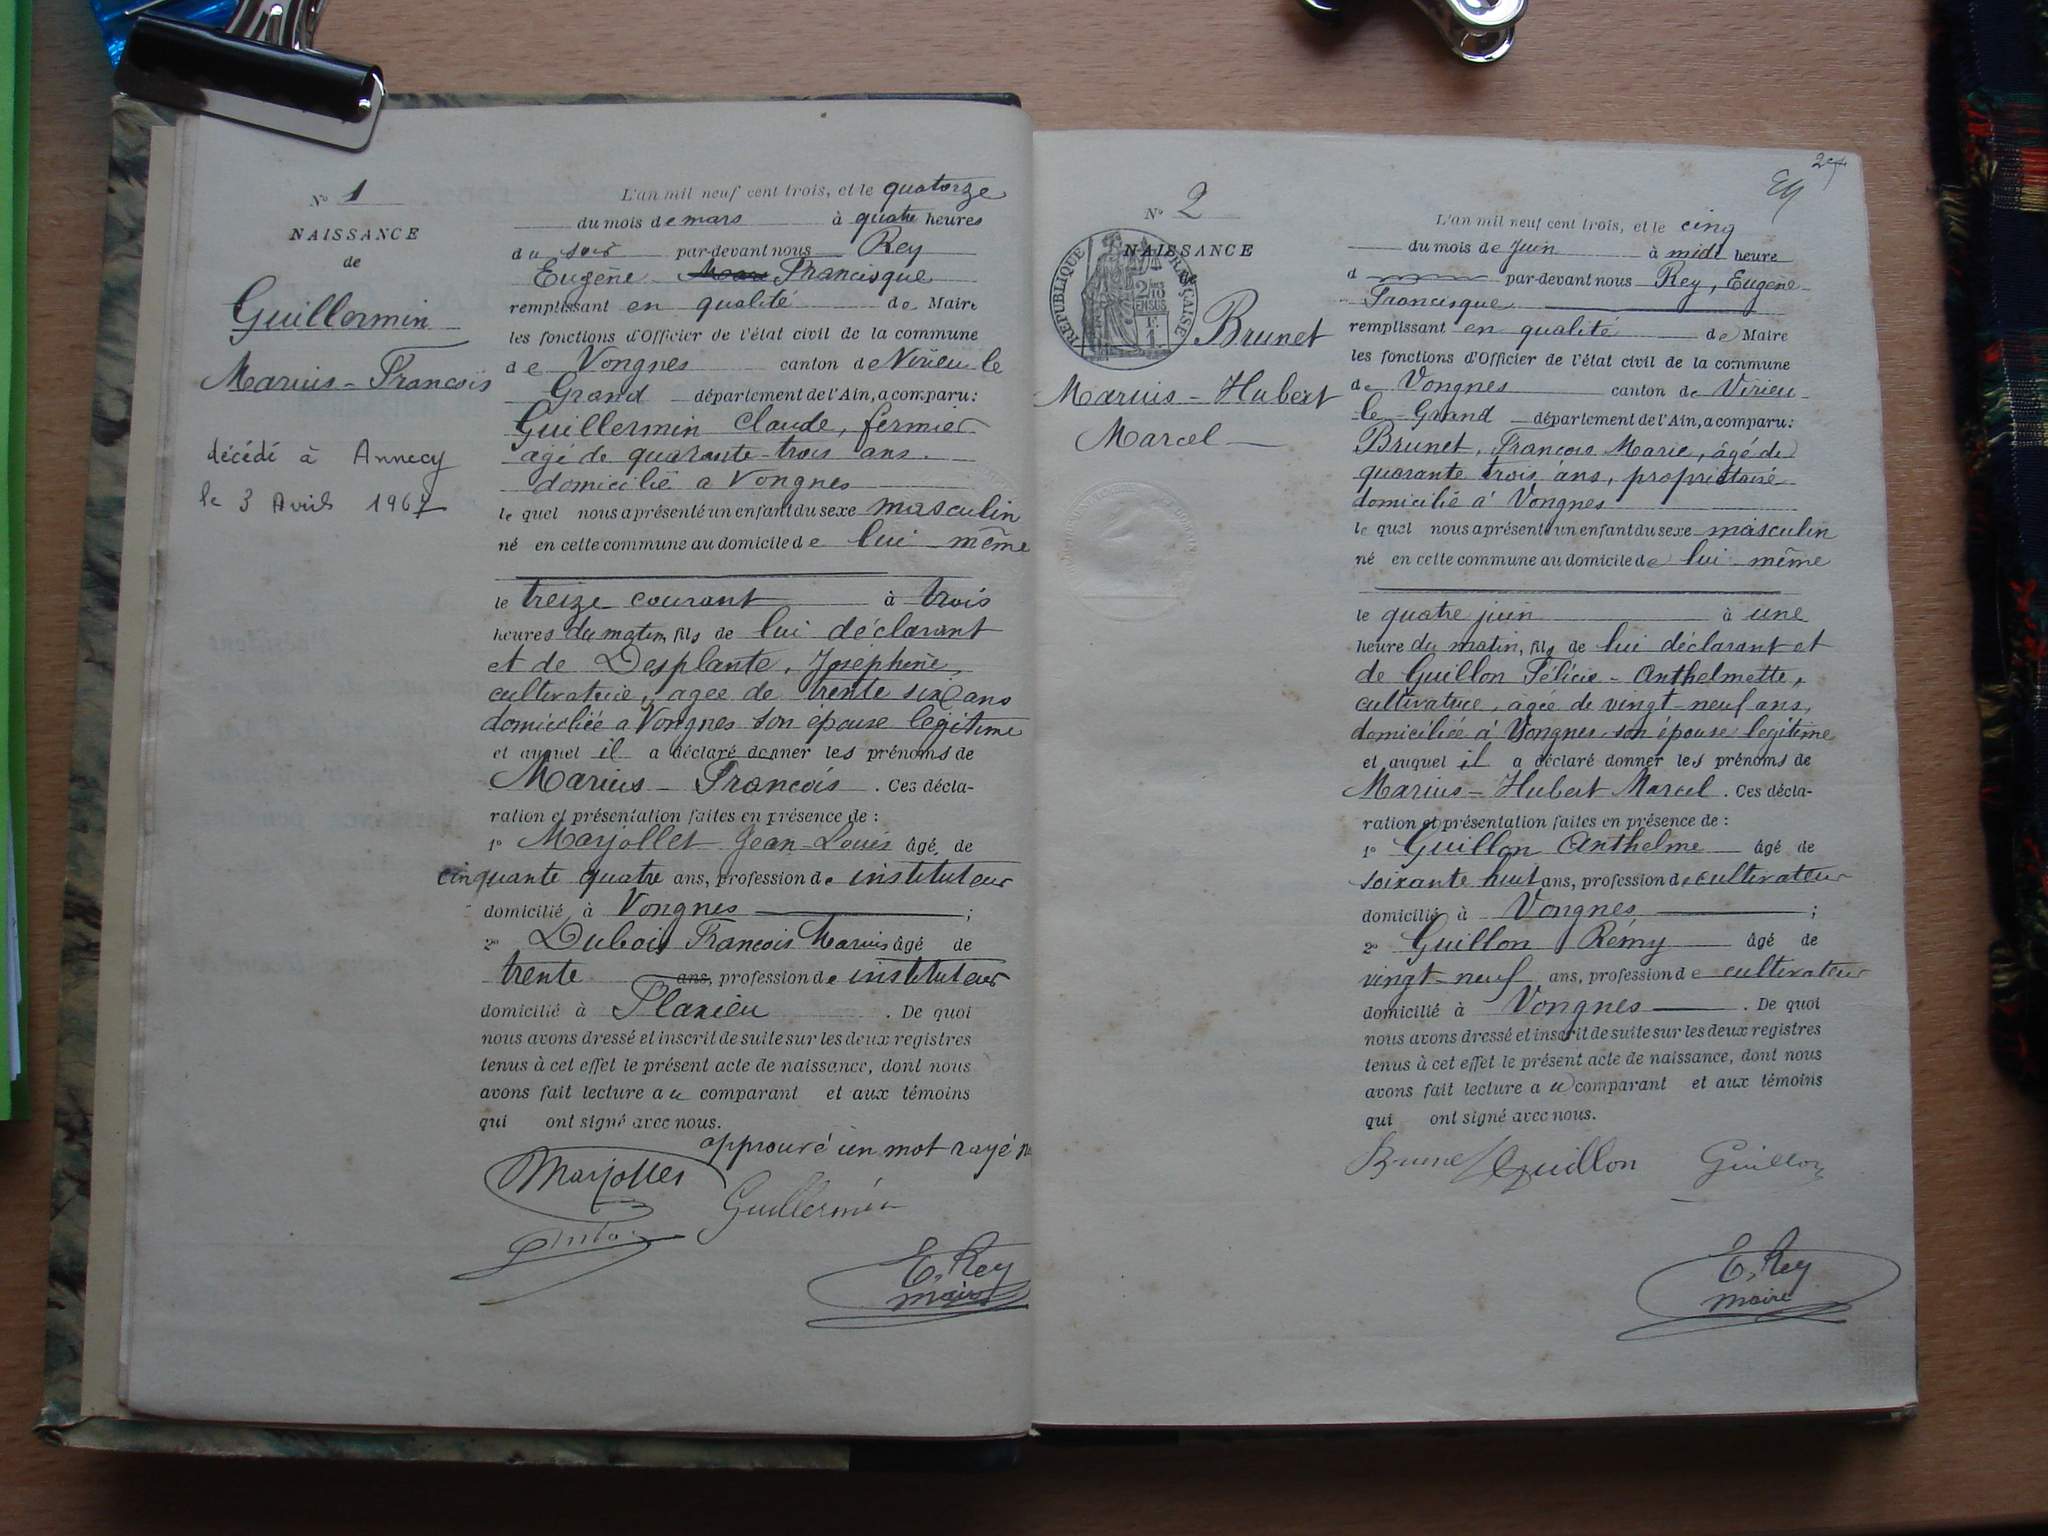 N° 1
NAISSANCE
de
Guillermin
Marius - François
décédé à Annecy
le 3 Avril 1967
L'an mil neuf cent trois, et le quatorze
du mois de mars à quatre heures
du soir par-devant nous Rey
Eugène Francisque
remplissant en qualité de Maire
les fonctions d'Officier de l'état civil de la commune
de Vongnes canton de Virieu le
Grand département de l'Ain, a comparu :
Guillermin Claude, fermier
âgé de quarante-trois ans.
domicilié a Vongnes
le quel nous a présenté un enfant du sexe masculin
né en cette commune au domicile de lui même
le treize courant à trois
heures du matin, fils de lui déclarant
et de Desplante, Joséphine,
cultivatrice, agée de trente six ans
domiciliée a Vongnes son épouse légitime
et auquel il a déclaré donner les prénoms de
Marius - François . Ces décla-
ration et présentation faites en présence de :
1° Marjollet Jean-Louis âgé de
cinquante quatre ans, profession de instituteur
domicilié à Vongnes ;
2° Dubois François Marius âgé de
trente ans, profession de instituteur
domicilié à Flaxieu . De quoi
nous avons dressé et inscrit de suite sur les deux registres
tenus à cet effet le présent acte de naissance, dont nous
avons fait lecture au comparant et aux témoins
qui ont signé avec nous.
approuvé un mot rayé
Marjollet
Guillermin
E. Rey
maire
N° 2
NAISSANCE
RÉPUBLIQUE FRANÇAISE
Brunet
Marius - Hubert
Marcel
L'an mil neuf cent trois, et le cinq
du mois de Juin à midi heure
d par-devant nous Rey, Eugène
Francisque
remplissant en qualité de Maire
les fonctions d'Officier de l'état civil de la commune
de Vongnes canton de Virieu
le - Grand département de l'Ain, a comparu :
Brunet, François Marie, âgé de
quarante trois ans, propriétaire
domicilié à Vongnes
le quel nous a présenté un enfant du sexe masculin
né en cette commune au domicile de lui même
le quatre juin à une
heure du matin, fils de lui déclarant et
de Guillon Félicie - Anthelmette,
cultivatrice, agée de vingt-neuf ans,
domiciliée à Vongnes son épouse légitime
et auquel il a déclaré donner les prénoms de
Marius - Hubert Marcel . Ces décla-
ration et présentation faites en présence de :
1° Guillon Anthelme âgé de
soixante huit ans, profession de cultivateur
domicilié à Vongnes ;
2° Guillon Rémy âgé de
vingt-neuf ans, profession de cultivateur
domicilié à Vongnes . De quoi
nous avons dressé et inscrit de suite sur les deux registres
tenus à cet effet le présent acte de naissance, dont nous
avons fait lecture au comparant et aux témoins
qui ont signé avec nous.
Brunet Guillon Guillon
E. Rey
maire